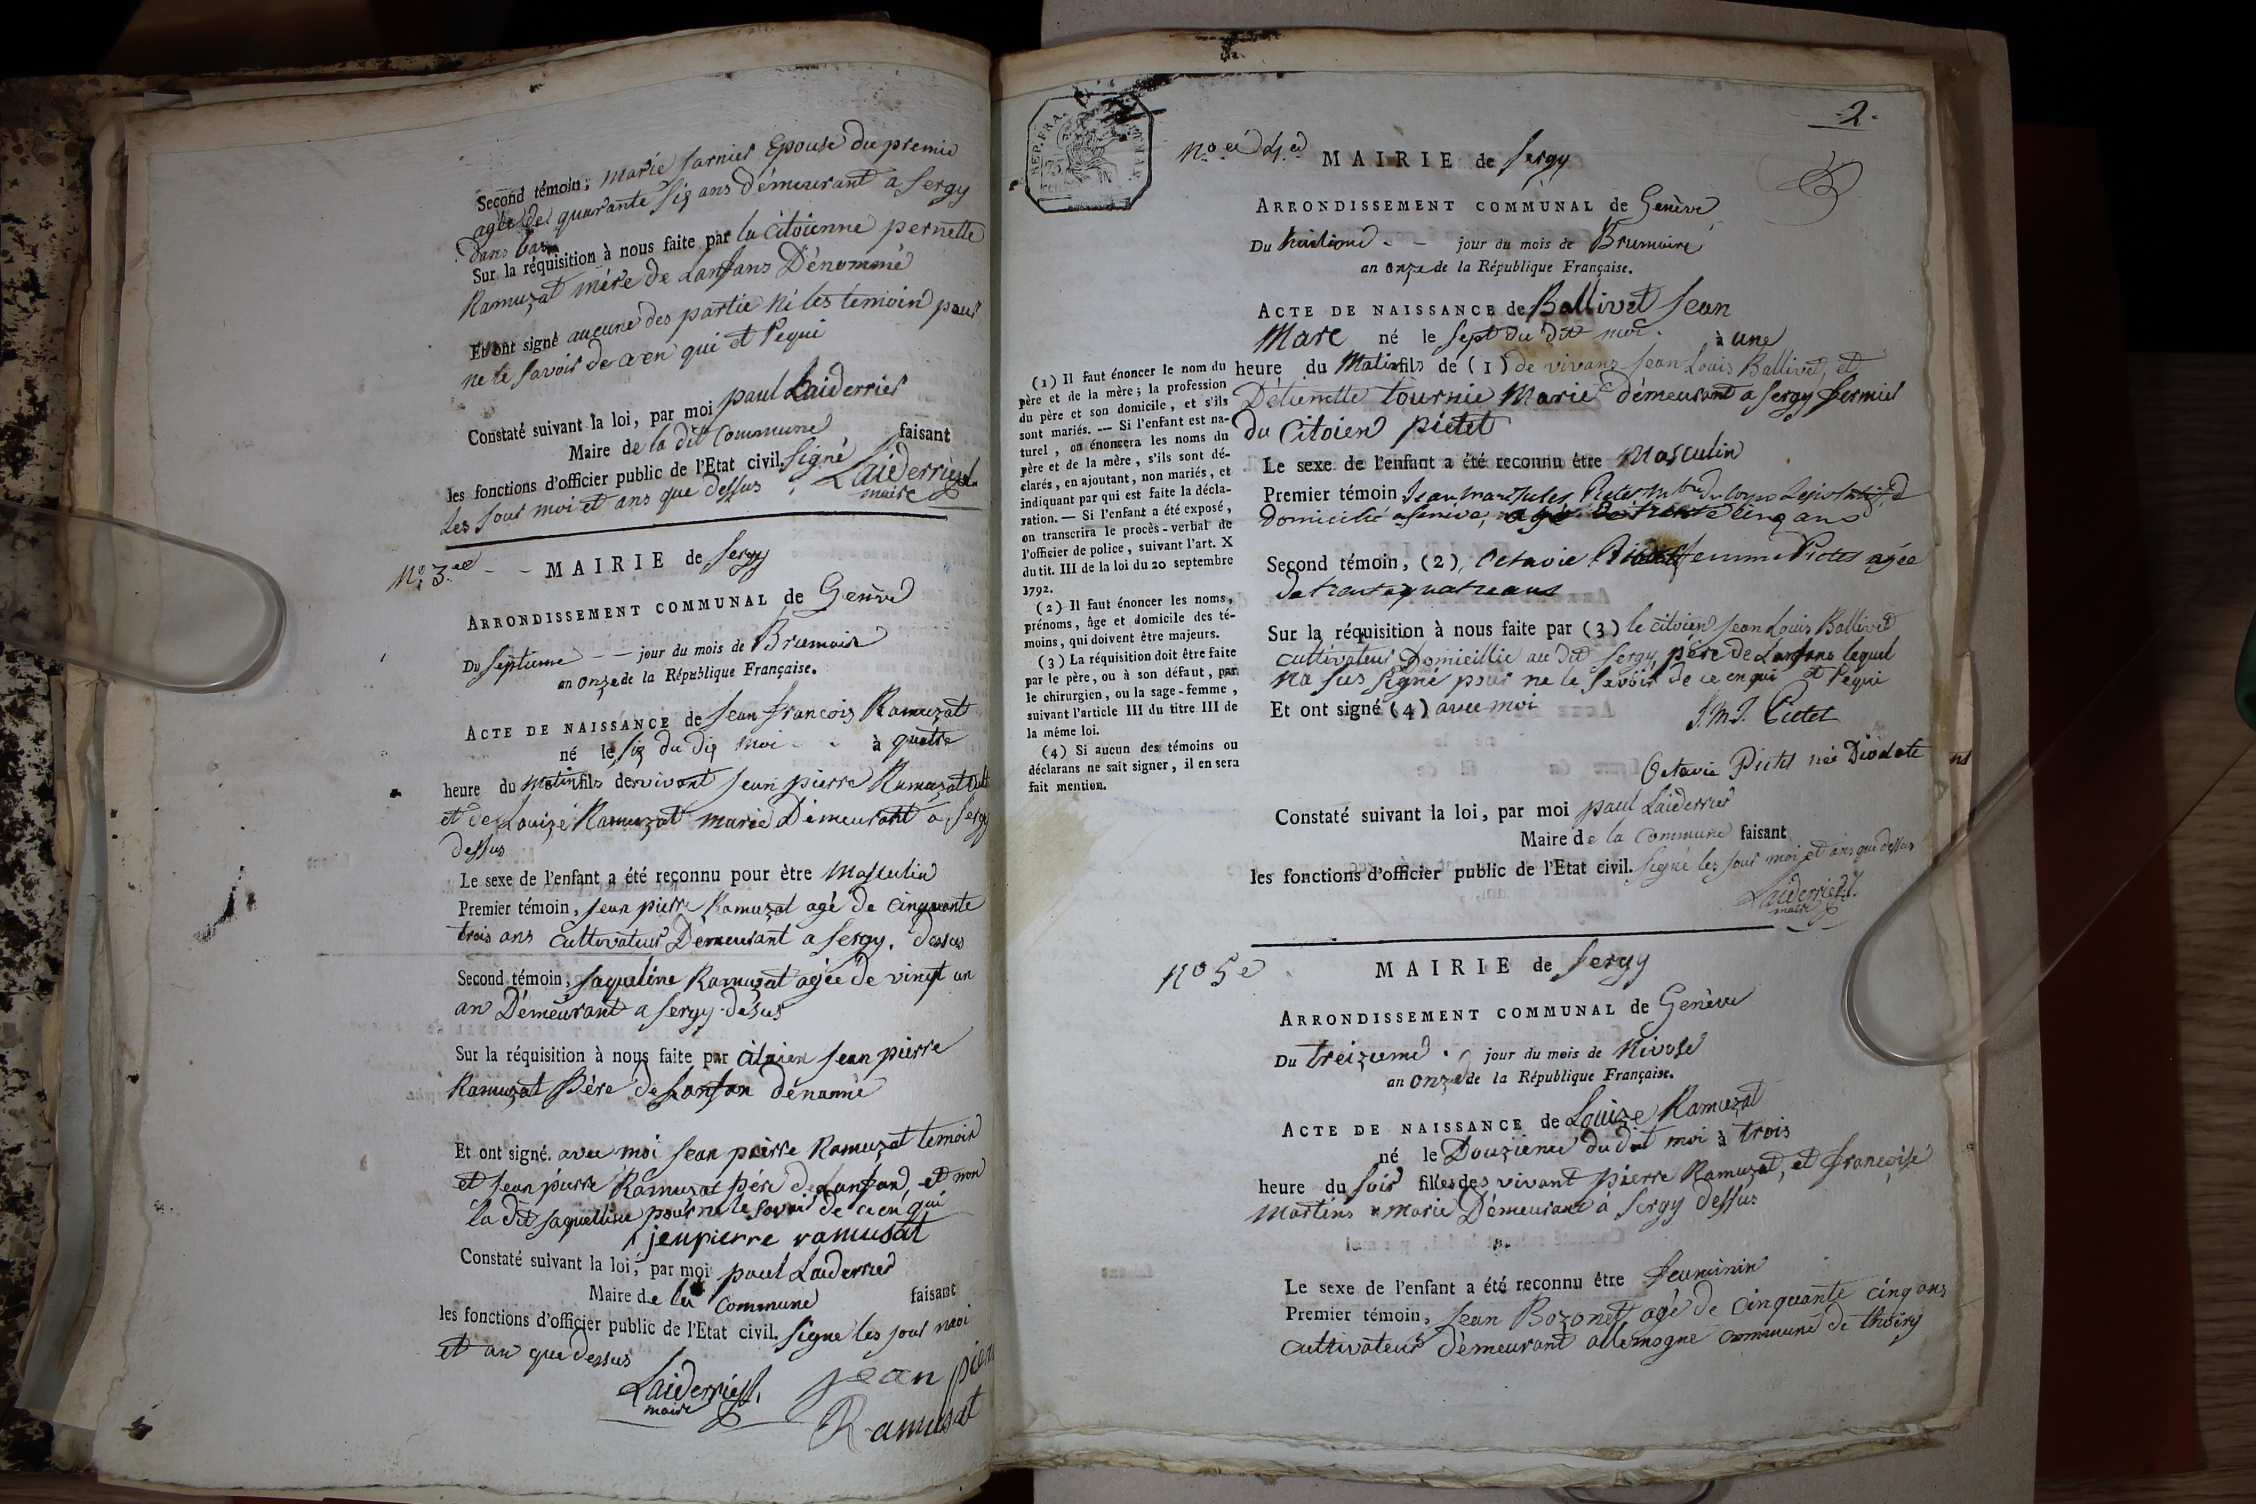 Second témoin, Marie farnier Epouse du premie
agée de quarante six ans démeurant a Sergy
dans bas
Sur la réquisition à nous faite par la Citoienne pernette
Ramuzat mére de Lanfans Dénommé
Et ont signé aucune des partie ni les témoin pour
ne le savoir de cen qui et Requi
Constaté suivant la loi, par moi paul Laiderrier
Maire de la dit Commune faisant
les fonctions d'officier public de l'Etat civil. Signé
les jour moi et ans que dessus Laiderrier
maire
No 3.ee MAIRIE de Sergy
ARRONDISSEMENT COMMUNAL de Genève
Du Septieme jour du mois de Brumaire
an onze de la République Française.
ACTE DE NAISSANCE de Jean francois Ramuzat
né le six du dix moi à quatre
heure du Matin fils des vivant Jean pierre Ramuzat
et de Louize Ramuzat marie Démeurant a Sergy
dessus
Le sexe de l'enfant a été reconnu pour être Masculin
Premier témoin, Jean pierre Ramuzat agé de cinquante
trois ans Cultivateur Demeurant a Sergy. dessus
Second témoin, Jaqueline Ramuzat agée de vingt un
an Démeurant a Sergy désus
Sur la réquisition à nous faite par Citoien Jean pierre
Ramuzat Pére de Lanfan dénommé
Et ont signé. avec moi Jean pierre Ramuzat temoin
et Jean pierre Ramuzat pére de Lanfan et non
la dit Jaqueline pour ne le savoir de ce en qui
jeupierre ramusat
Constaté suivant la loi, par moi paul Laiderrier
Maire de la Commune faisant
les fonctions d'officier public de l'Etat civil. Signe les jour moi
et an que dessus
Laiderrier
maire
Jean pierr
Ramusat
2.
REP. FRA.
No 4.e MAIRIE de Sergy
ARRONDISSEMENT COMMUNAL de Genève
Du huitieme jour du mois de Brumaire
an onze de la République Française.
ACTE DE NAISSANCE de Ballivet Jean
Marc né le sept du dit moi à une
heure du Matin fils de (1) de vivans Jean Louis Ballivet, et
Détienette tournie Marié démeurant a Sergy fermier
du Citoien pictet
Le sexe de l'enfant a été reconnu être Masculin
Premier témoin Jean marc Jules Pictet Mbre du Corps Legislatif
domicilié a Genève, agé de trente cinq ans
Second témoin, (2), Octavie femme Pictet agée
de trente quatre ans
Sur la réquisition à nous faite par (3) le citoien Jean Louis Ballivet
cultivateur Domicillie au dit Sergy, pére de Lanfans lequel
na sus signé pour ne le savoir de ce en qui et Requi
Et ont signé (4) avec moi
J. M. J. Pictet
Octavie Pictet née Diodate
Constaté suivant la loi, par moi paul Laiderrier
Maire de la Commune faisant
les fonctions d'officier public de l'Etat civil. Signé les jour moi et ans que dessus
Laiderrier
maire
(1) Il faut énoncer le nom du
père et de la mère; la profession
du père et son domicile, et s'ils
sont mariés. — Si l'enfant est na-
turel, on énoncera les noms du
père et de la mère, s'ils sont dé-
clarés, en ajoutant, non mariés, et
indiquant par qui est faite la décla-
ration. — Si l'enfant a été exposé,
on transcrira le procès-verbal de
l'officier de police, suivant l'art. X
du tit. III de la loi du 20 septembre
1792.
(2) Il faut énoncer les noms,
prénoms, âge et domicile des té-
moins, qui doivent être majeurs.
(3) La réquisition doit être faite
par le père, ou à son défaut, par
le chirurgien, ou la sage-femme,
suivant l'article III du titre III de
la même loi.
(4) Si aucun des témoins ou
déclarans ne sait signer, il en sera
fait mention.
No 5e MAIRIE de Sergy
ARRONDISSEMENT COMMUNAL de Genève
Du treizieme jour du mois de Nivose
an onze de la République Française.
ACTE DE NAISSANCE de Louize Ramuzat
né le Douzieme du dit moi à trois
heure du soir filles des vivant pierre Ramuzat, et françoise
Martins Marie Démeurant à Sergy dessus
Le sexe de l'enfant a été reconnu être feuminin
Premier témoin, Jean Bozonet agé de cinquante cinq ans
Cultivateur démeurant allemogne commune de thoiry